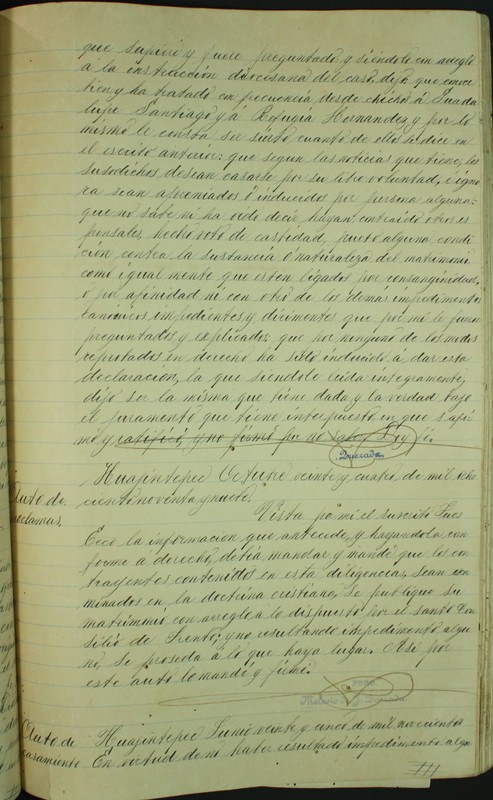 que supiere y fuere preguntado; y siéndole con areglo
á la instrucción diocesana del caso, dijo: que conoce
bien y ha tratado con frecuencia desde chicho á Guada
lupe Santiago y á Refugia Hernandez y por lo
mismo le consta ser sierto cuanto de ellos se dice en
el escrito anterior: que segun las noticias que tiene, los
susodichos desean casarse por su libre voluntad, é igno
ra sean apremiados ó inducidos por persona alguna:
que no sabe ni ha oido decir hayan contraido otros es
ponsales, hecho voto de castidad, puesto alguna condi
ción contra la sustancia ó naturaleza del matrimoni
como igualmente que esten ligados por consanginidad,
o por afinidad ni con otro de los demás impedimentos
canónicos, impedientes y dirimentes que por mi le fueron
preguntados y explicados: que por ninguno de los modos
reprobados en derecho ha sido inducido á dar esta
declaración, la que siendole leida integramente,
dijo ser la misma que tiene dada y la verdad bajo
el juramento que tiene interpuesto, en que se afir
mó y ratificó, y no firmó por no saber. Doy fé.
Quezada.
Huajintepec Octubre veinte y cuatro de mil ocho
cientos noventa y nueve.
Auto de
proclamas.
Vista por mi el suscrito Jues
Ecco la informacion que antecede, y hayandola con
forme á derecho, debia mandar y mandé que los con
trayentes contenidos en esta diligencias, sean exa
minados en la doctrina cristiana, se publique su
matrimonio con arreglo á lo dispuesto por el santo Con
silio de Trento; y no resultando impedimento algu
no, se proseda á lo que haya lugar. Así por
este auto lo mandé y firmé.
Auto de
casamiento
Huajintepec Junio veinte y cinco de mil novecientos
En virtud de no haber resultado impedimento algu